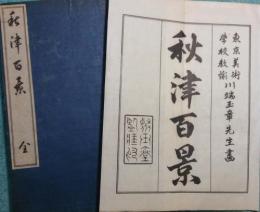 秋津百景
全
東京美術
学校教諭川端玉章先生畫
秋津百景